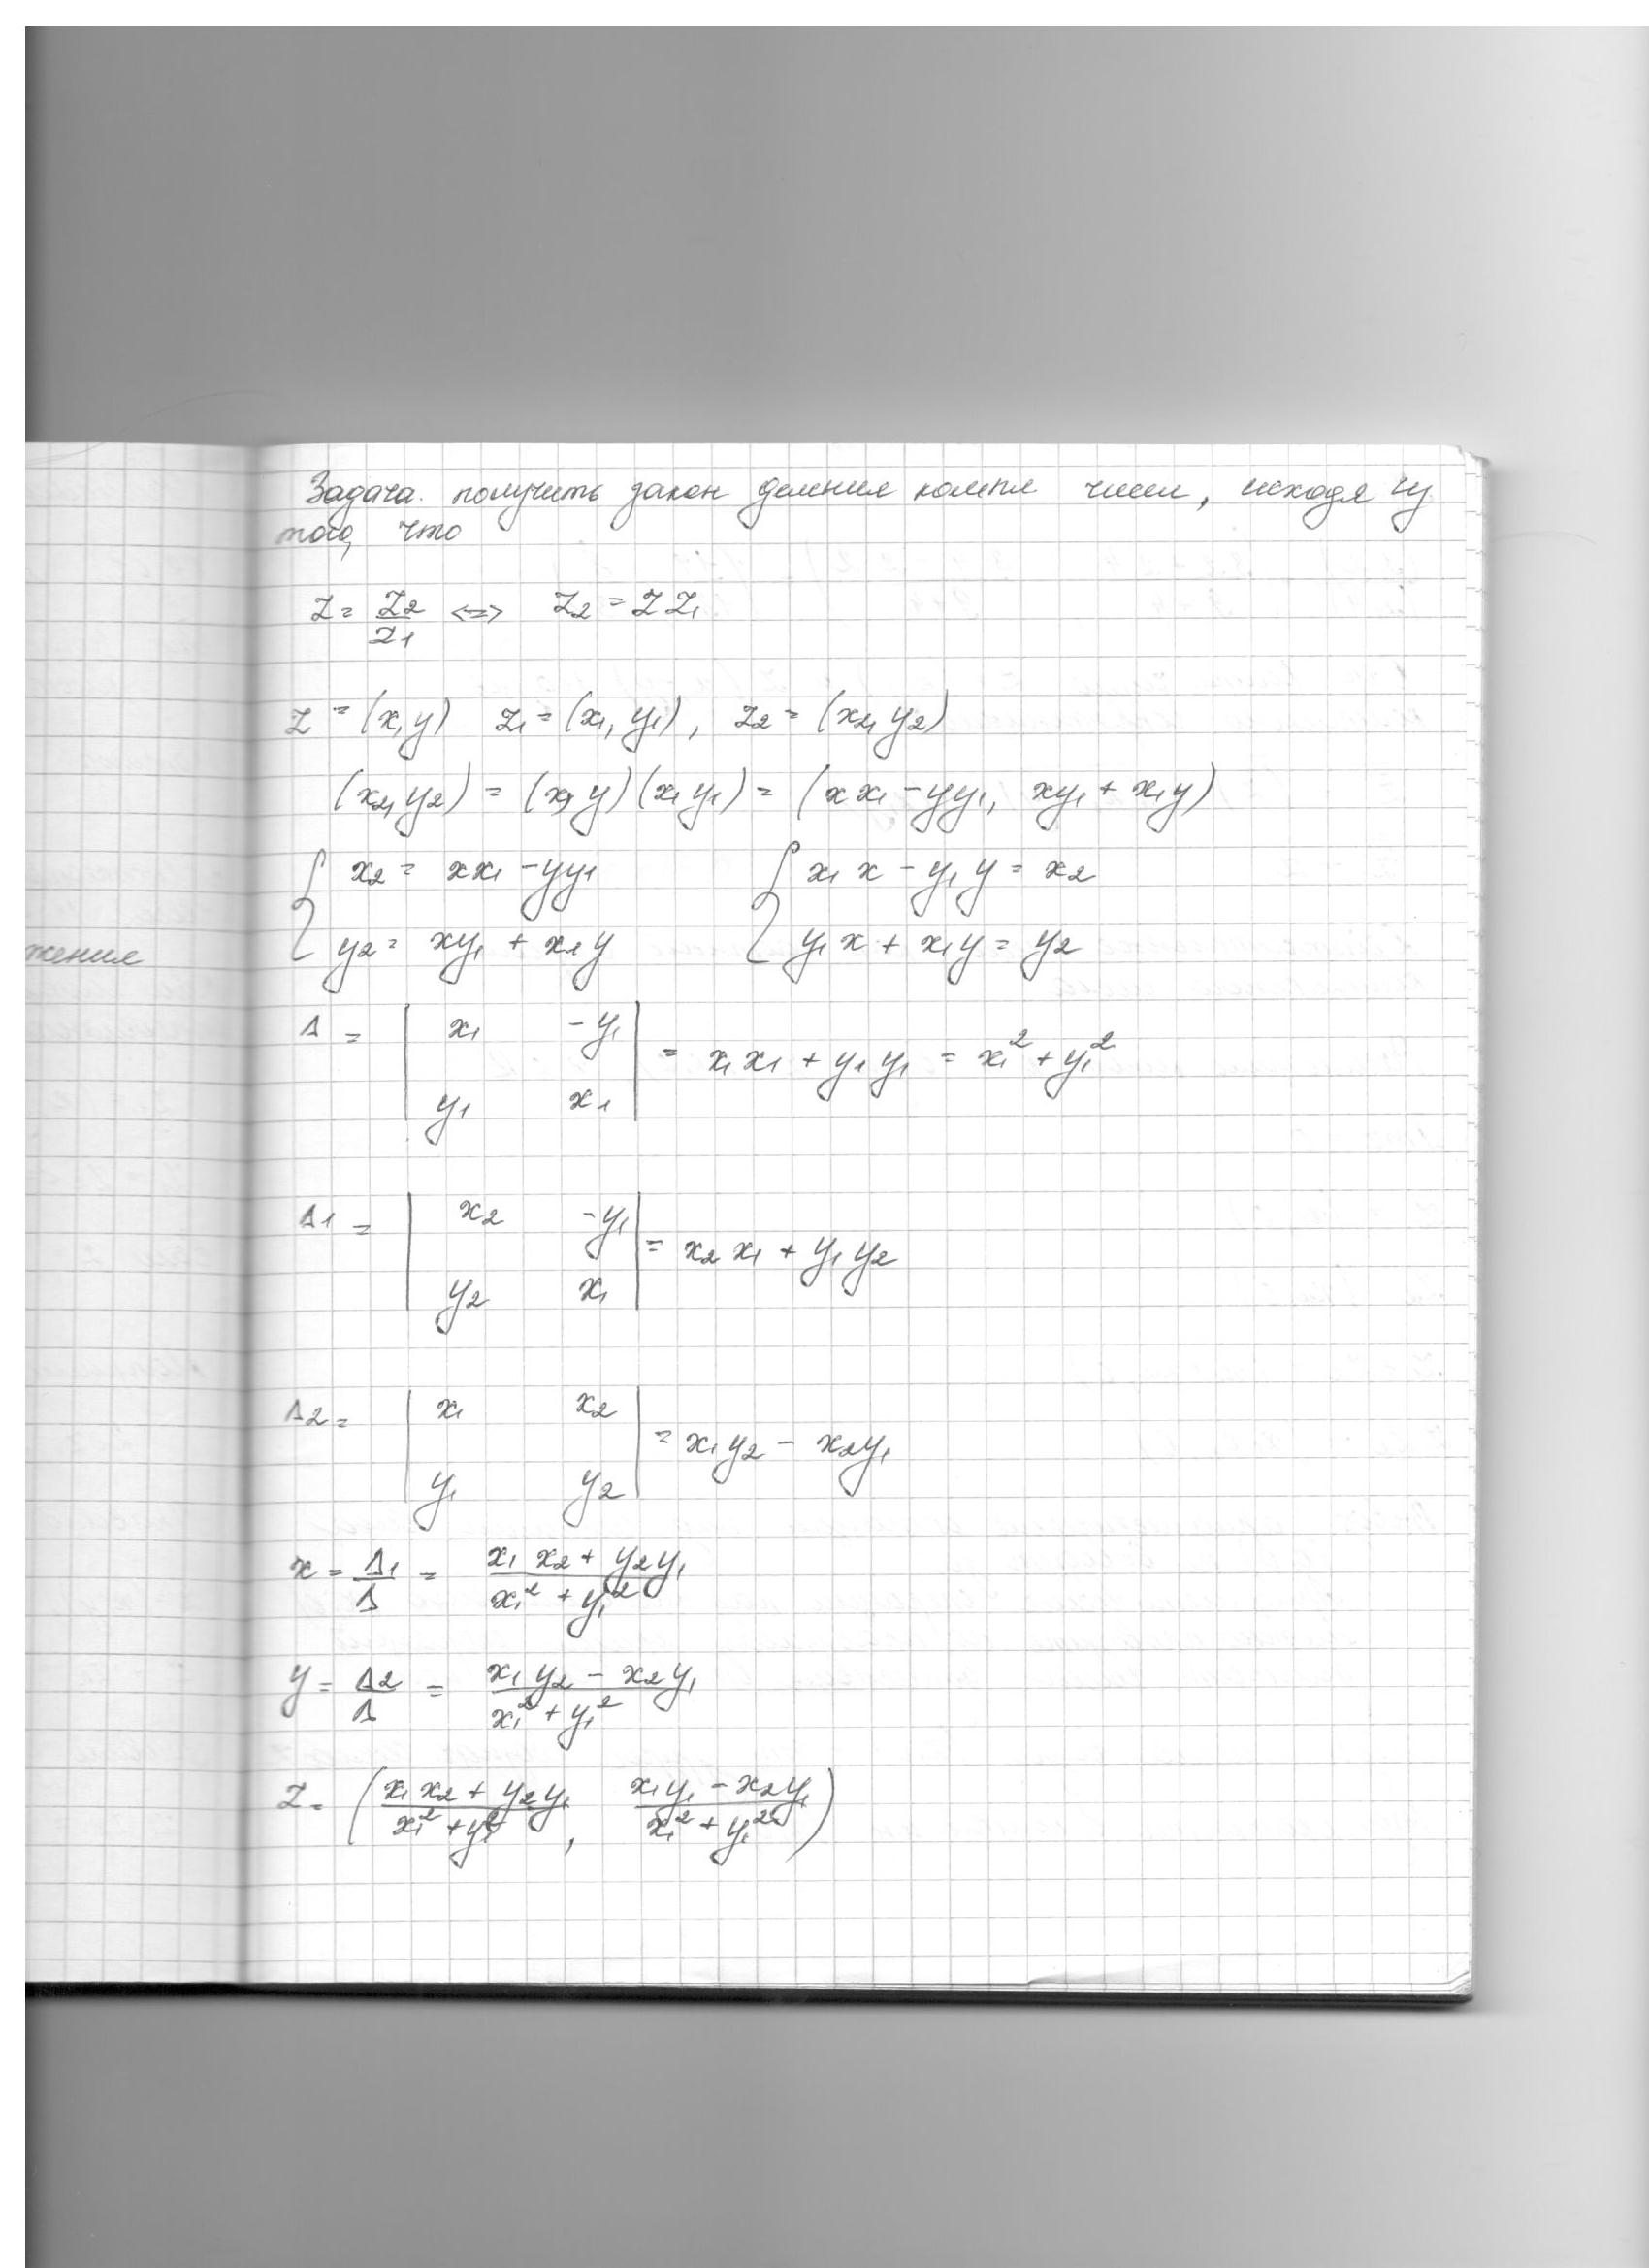 Задача. получить закон деления компл чисел, исходя из
того, что
z = z₂/z₁ <=> z₂ = z z₁
z = (x, y) z₁ = (x₁, y₁), z₂ = (x₂, y₂)
(x₂, y₂) = (x, y)(x₁ y₁) = (x x₁ - y y₁, x y₁ + x₁ y)
{ x₂ = x x₁ - y y₁ { x₁ x - y₁ y = x₂
{ y₂ = x y₁ + x₁ y { y₁ x + x₁ y = y₂
жения
Δ = | x₁ -y₁ | = x₁ x₁ + y₁ y₁ = x₁² + y₁²
| y₁ x₁ |
Δ₁ = | x₂ -y₁ | = x₂ x₁ + y₁ y₂
| y₂ x₁ |
Δ₂ = | x₁ x₂ | = x₁ y₂ - x₂ y₁
| y₁ y₂ |
x = Δ₁/Δ = (x₁ x₂ + y₂ y₁)/(x₁² + y₁²)
y = Δ₂/Δ = (x₁ y₂ - x₂ y₁)/(x₁² + y₁²)
z = ((x₁ x₂ + y₂ y₁)/(x₁² + y₁²), (x₁ y₁ - x₂ y₁)/(x₁² + y₁²))